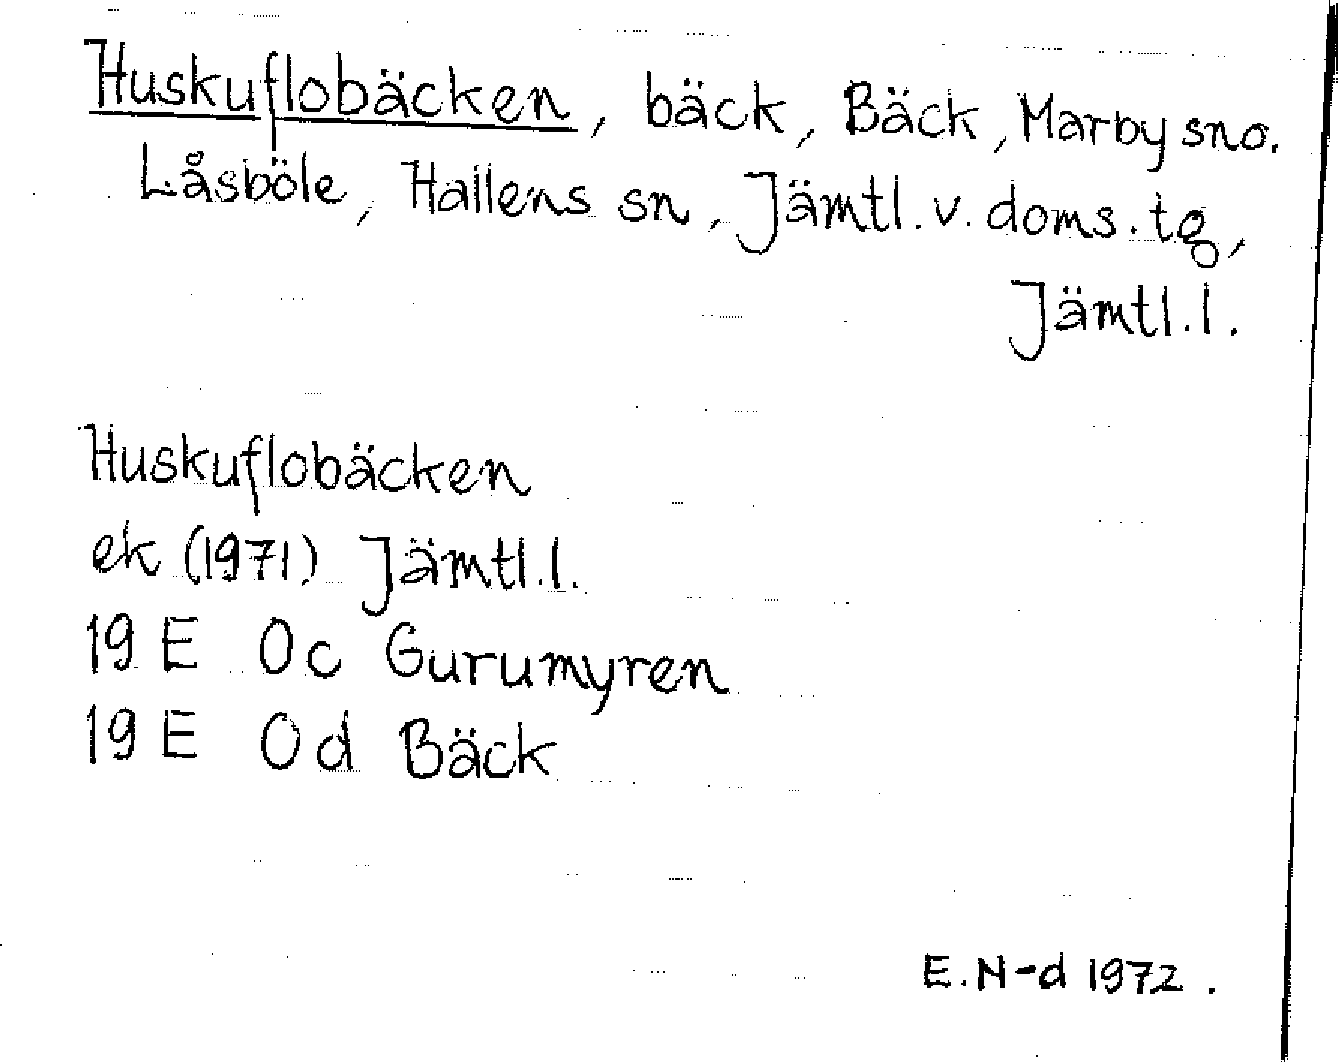 Huskuflobäcken, bäck, Bäck, Marby sno.
Låsböle, Hallens sn, Jämtl. v. doms. tg,
Jämtl. l.
Huskuflobäcken
ek (1971) Jämtl. l.
19 E 0c Gurumyren
19 E 0d Bäck
E. N-d 1972.